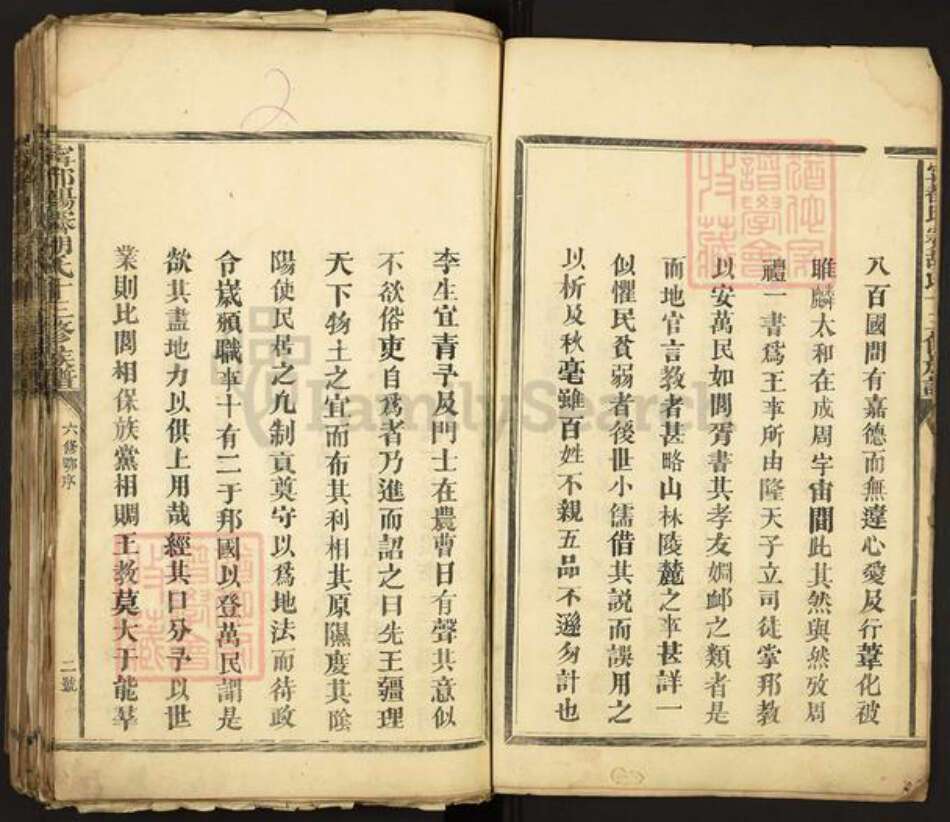 八百國間有嘉德而無違心愛及行葦化被
雎麟太和在成周宇宙間此其然與然攷周
禮一書爲王事所由隆天子立司徒掌邦教
以安萬民如閭胥書其孝友婣䘏之類者是
而地官言教者甚略山林陵麓之事甚詳一
似懼民貧弱者後世小儒借其説而誤用之
以析及秋毫雖百姓不親五品不遜勿計也
李生宜青予及門士在農曹日有聲其意似
不欲俗吏自爲者乃進而詔之曰先王疆理
天下物土之宜而布其利相其原隰度其陰
陽使民居之九制貢奠守以爲地法而待政
令嵗頒職事十有二于邦國以登萬民謂是
欲其盡地力以供上用哉經其口分予以世
業則比閭相保族黨相賙王教莫大于能羣
六修鄂序
二號
十三修族譜
猶他家譜學會收藏
FamilySearch
2